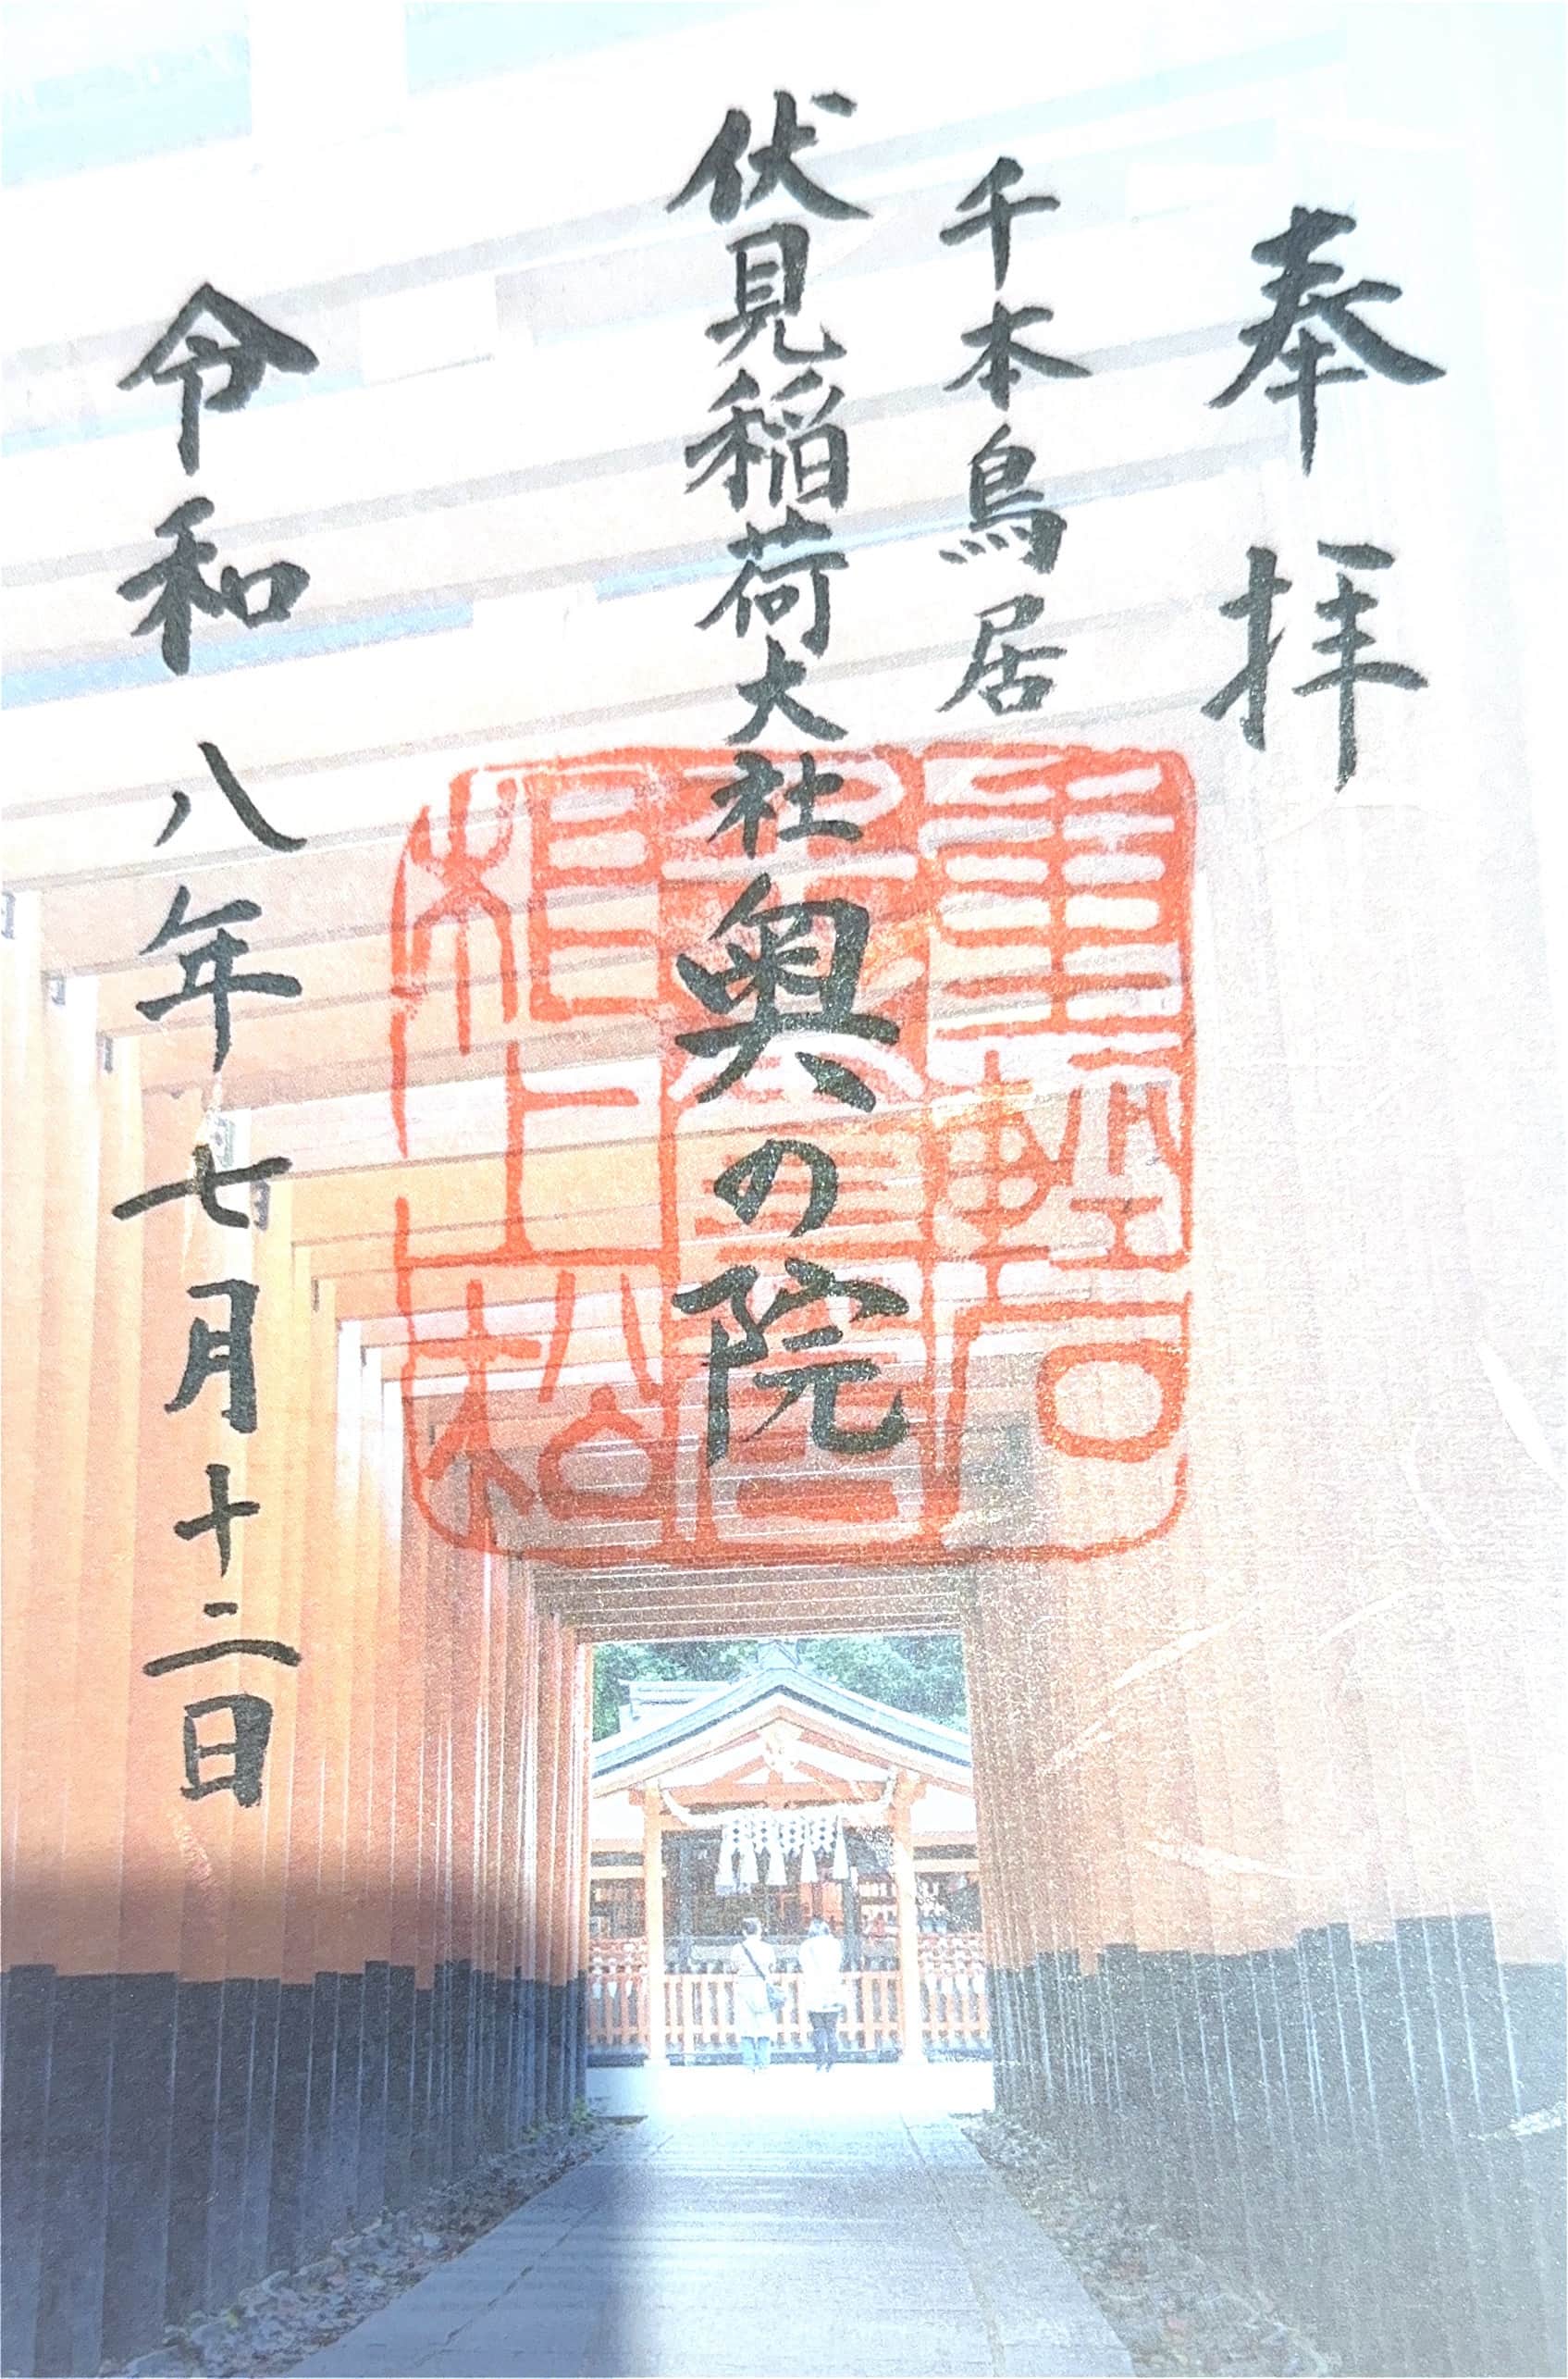 奉拝
千本鳥居
伏見稲荷大社奥の院
令和八年七月十二日